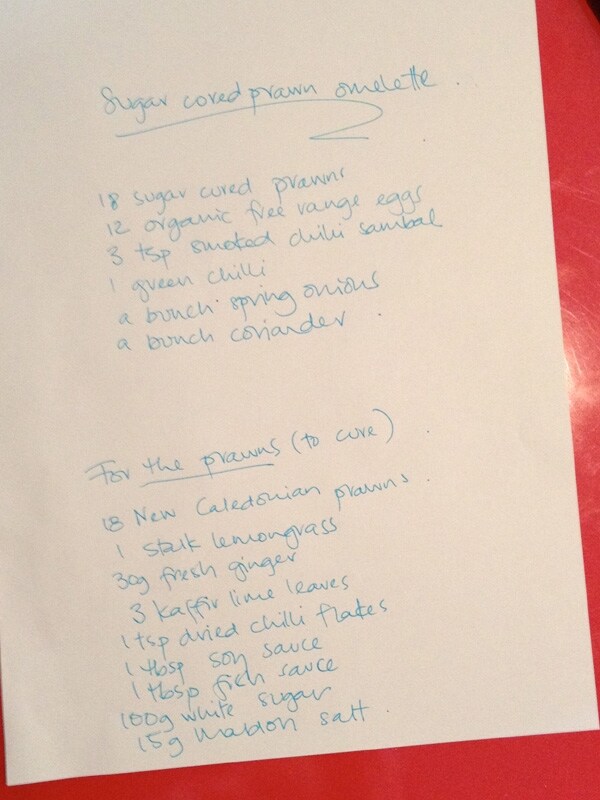 Sugar cured prawn omelette.
18 sugar cured prawns
12 organic free range eggs
3 tsp smoked chilli sambal
1 green chilli
a bunch spring onions
a bunch coriander.
For the prawns (to cure).
18 New Caledonian prawns.
1 stalk lemongrass
30g fresh ginger
3 kaffir lime leaves
1 tsp dried chilli flakes
1 tbsp soy sauce
1 tbsp fish sauce
100g white sugar
15g Maldon salt.